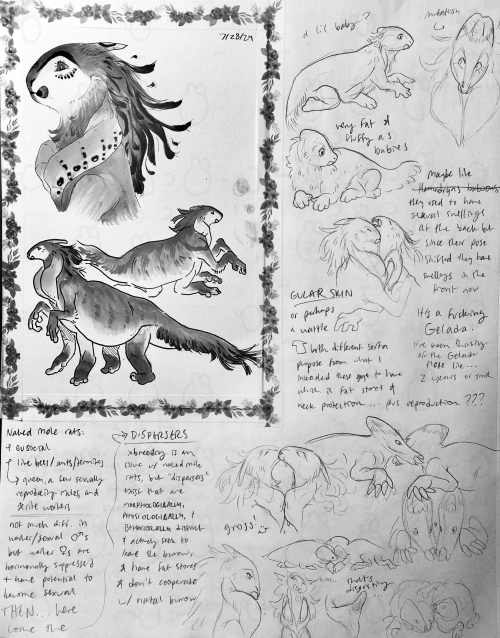 7/28/24
a lil baby?
mutation
very fat &
fluffy as
babies
maybe like
Hamadryas baboons
they used to have
sexual swellings
at the back but
since their pose
shifted they have
swellings in the
front now
GULAR SKIN
or perhaps
a wattle
It's a fucking
Gelada.
I've been thinking
of the Gelada
2 years or smth
both different sorta
purpose from what I
intended these guys to have
which is fat stores &
neck protection... plus reproduction???
Naked mole rats:
EUSOCIAL
like bees/ants/termites
queen, a few sexually
reproducing males, and
sterile workers
not much diff. in
worker/sexual ♂s
but worker ♀s are
hormonally suppressed
& have potential to
become sexual
THEN... here
come the
→ DISPERSERS
inbreeding is an
issue w/ naked mole
rats, but "dispersers"
exist that are
MORPHOLOGICALLY,
PHYSIOLOGICALLY, &
BEHAVIORALLY DISTINCT
& actively seek to
leave the burrow,
& have fat stores
& don't cooperate
w/ natal burrow
gross!
hm.
that's
disgusting